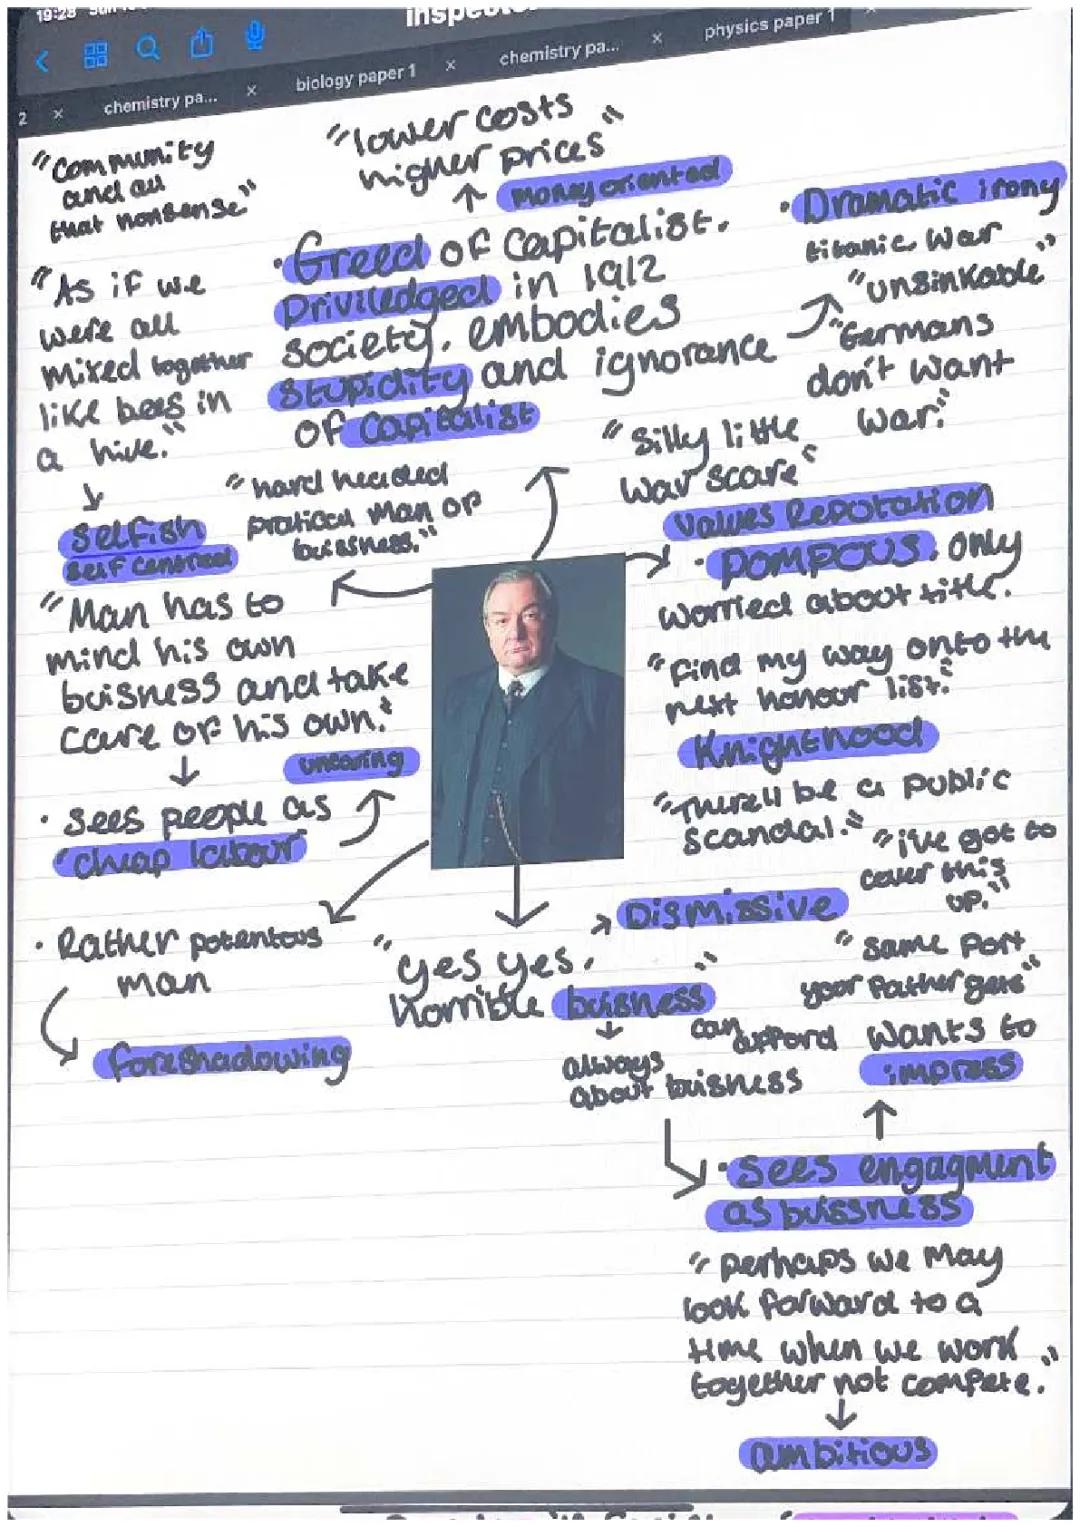 19:28
inspecto
2 ×
chemistry pa... ×
biology paper 1 ×
chemistry pa... ×
physics paper 1 ×
"Community
and all
that nonsense"
"lower costs
higher prices"
money oriented
• Greed of Capitalist.
Priviledged in 1912
society, embodies
Stupidity and ignorance
of Capitalist
• Dramatic irony
titanic War
"unsinkable"
"Germans
don't want
war."
"Silly little
war scare"
"As if we
were all
mixed together
like bees in
a hive."
Selfish
Self centred
"hard headed
pratical man of
buissness."
values Reputation
• POMPOUS. only
worried about title.
"find my way onto the
next honour list."
Knighthood
"There'll be a public
scandal."
"i've got to
cover this
up."
"Man has to
mind his own
buisness and take
care of his own."
uncaring
• Sees people as
"cheap labour"
• Rather potentous
man
foreshadowing
Dismissive
"yes yes.
horrible buisness"
always
about buisness
"same port
your father gets"
can afford
wants to
impress
• Sees engagment
as buissness
"perhaps we may
look forward to a
time when we work
together not compete."
ambitious